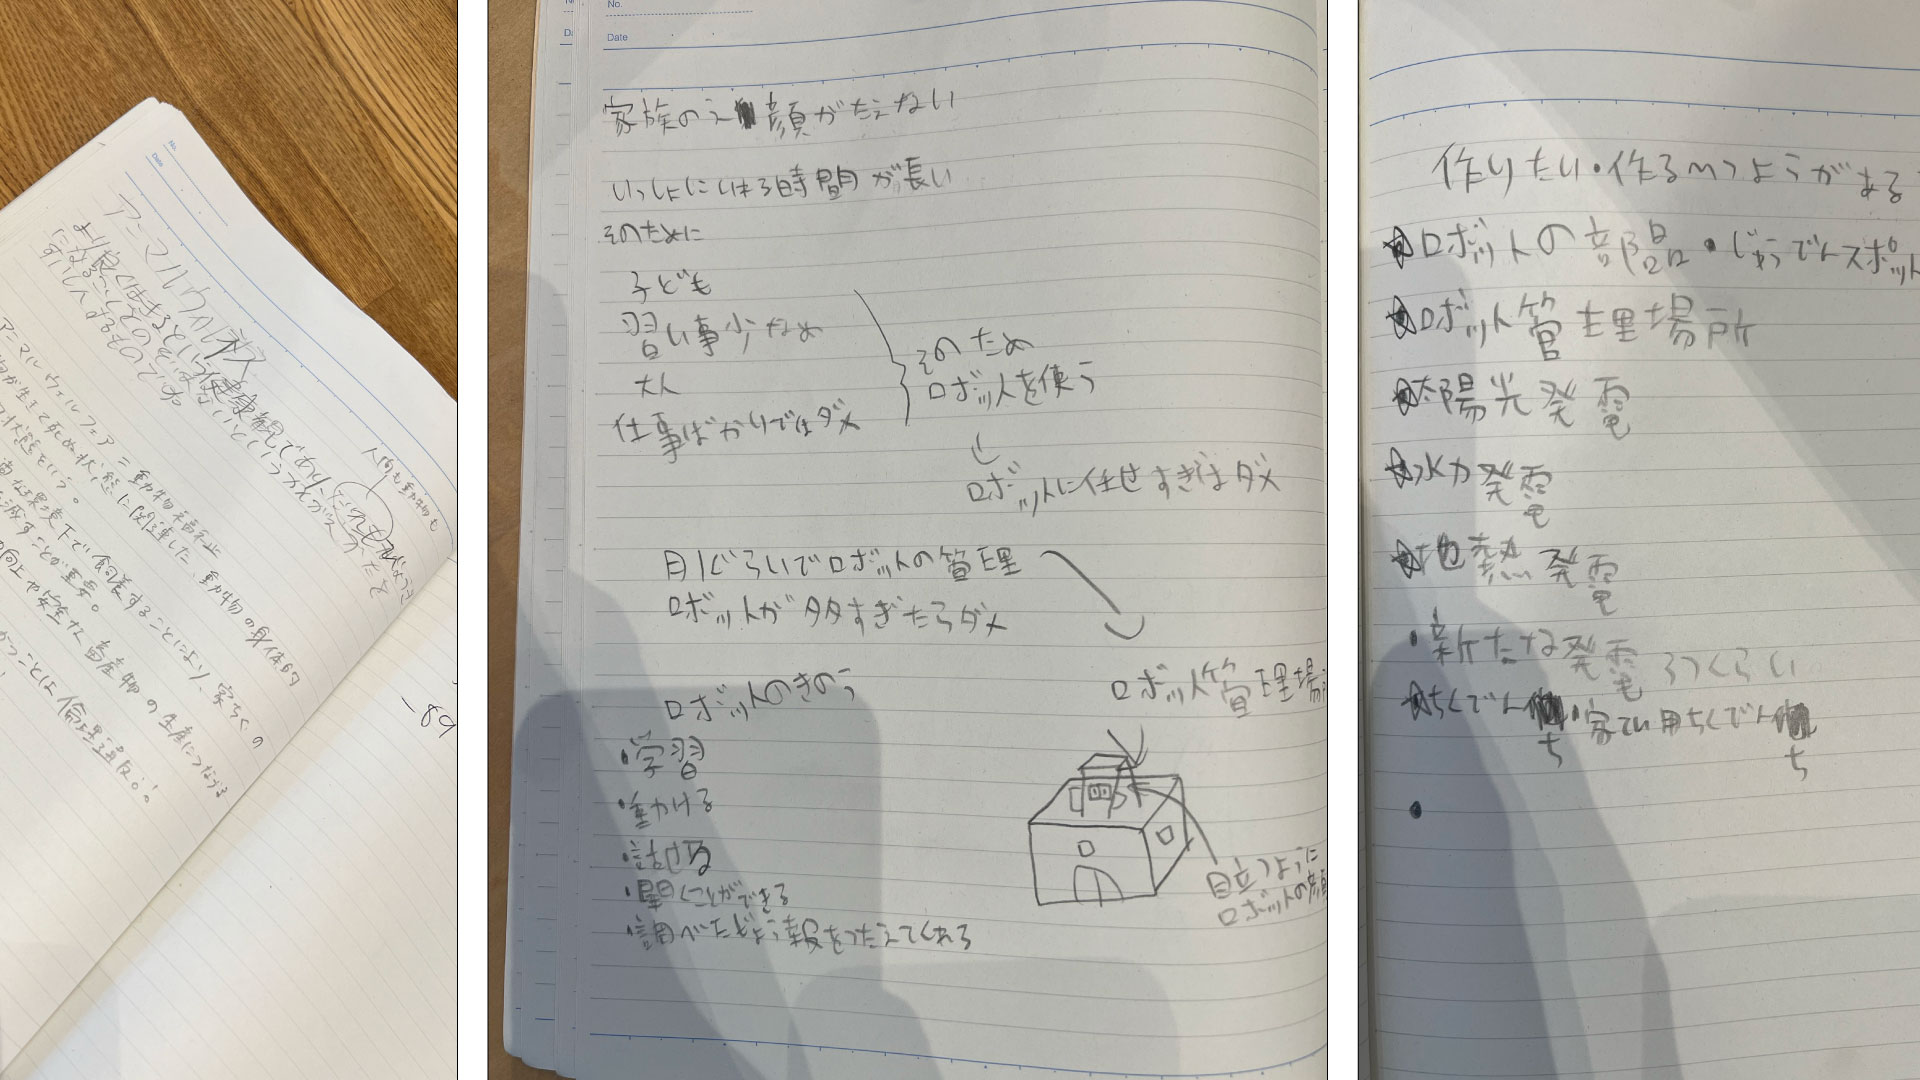 No.
Date
アニマルウィル
より良くはする
健康観であり、
人間も動物も
アニマルウェルフェア＝動物福祉
が生きて死ぬ状態に関連した、動物の身体的
状態をいう。
な環境下で飼養することにより、家ちくの
減すことが重要。
向上や安全な畜産物の生産につながる
うことは倫理違反!!
-89
No.
Date
家族のえ顔がたえない
いっしょにいれる時間が長い
そのために
子ども
習い事少なめ
大人
仕事ばかりではダメ
そのため
ロボットを使う
ロボットに任せすぎはダメ
月1ぐらいでロボットの管理
ロボットが多すぎたらダメ
ロボット管理場
ロボットのきのう
・学習
・動かける
・話せる
・聞くことができる
・調べたじょう報をつたえてくれる
目立つように
ロボットの顔
作りたい・作るひつようがある
ロボットの部品・じゅうでんスポット
ロボット管理場所
太陽光発電
水力発電
地熱発電
・新たな発電
ちくでんち・家てい用ちくでんち